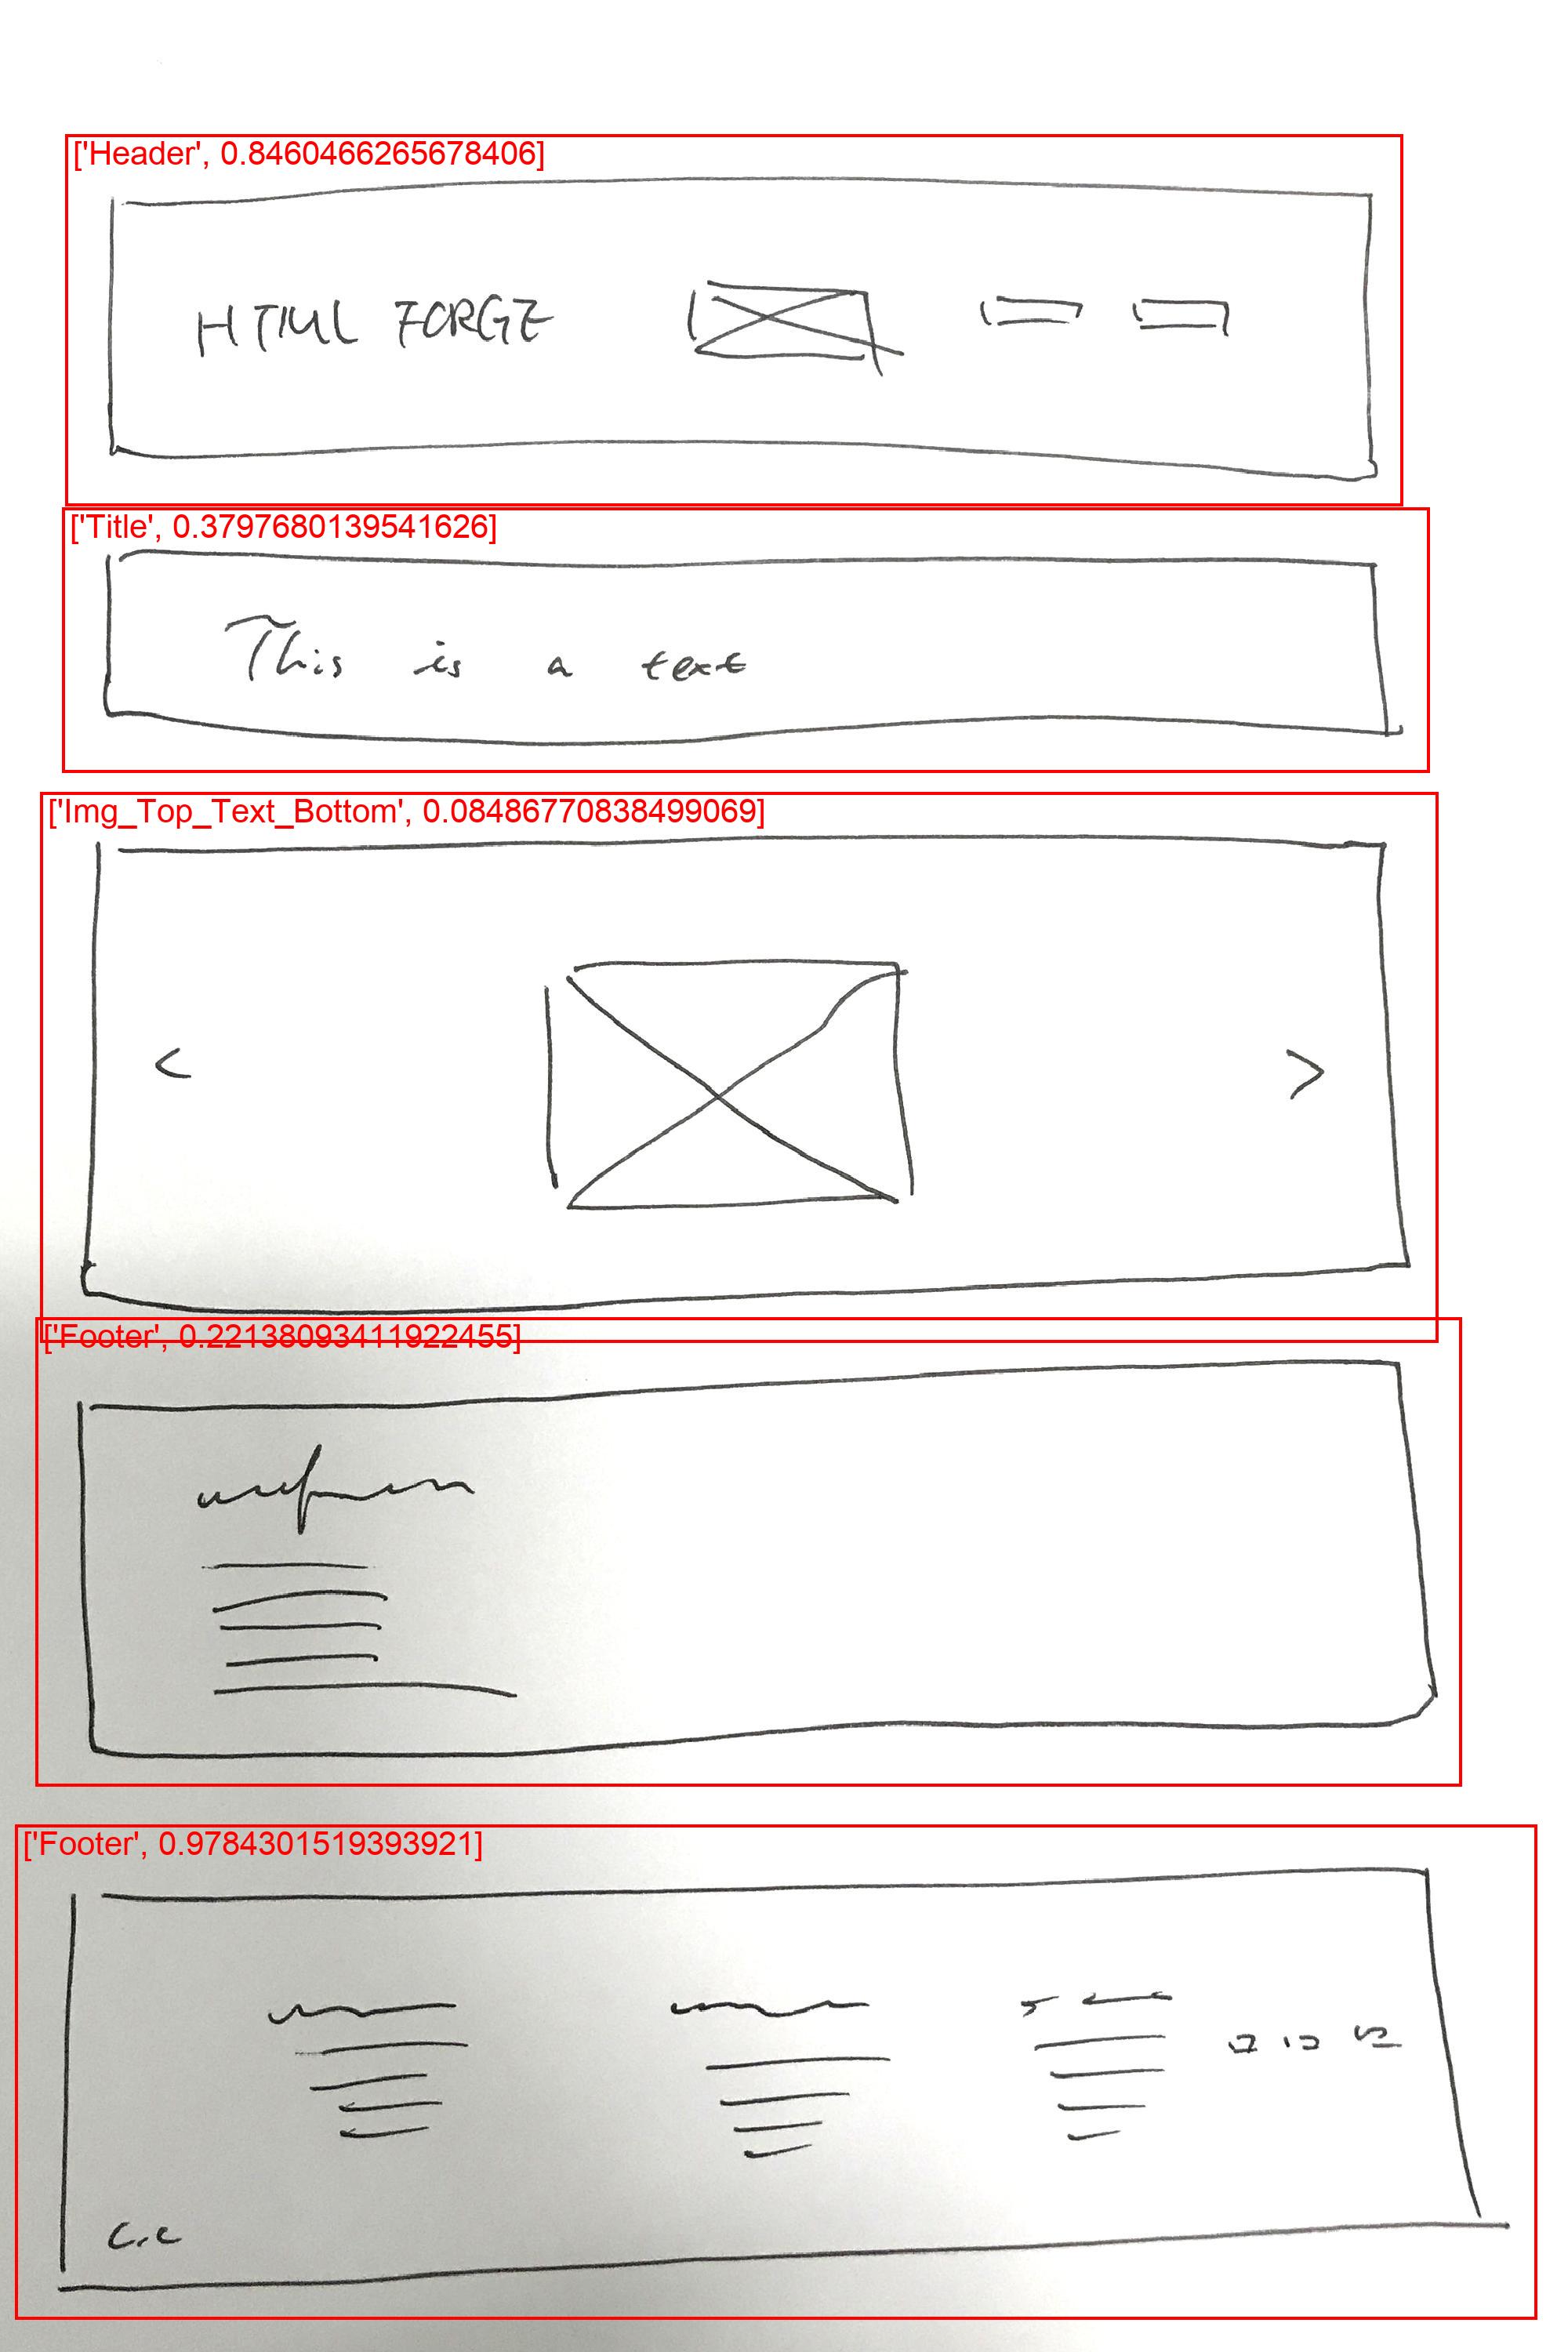 ['Header', 0.8460466265678406]
HTML FORGE
['Title', 0.3797680139541626]
This is a text
['Img_Top_Text_Bottom', 0.08486770838499069]
<
>
['Footer', 0.22138093411922455]
['Footer', 0.9784301519393921]